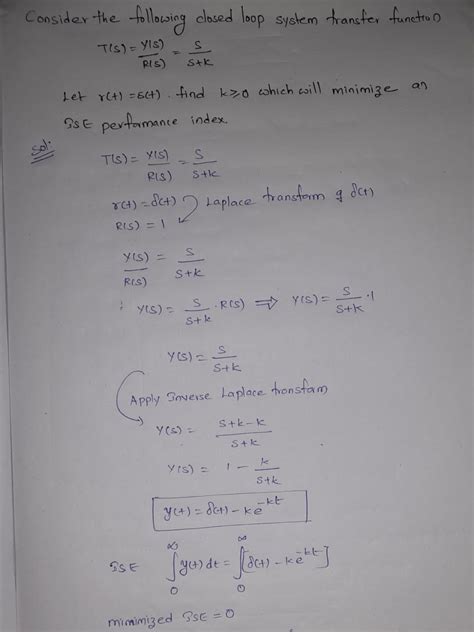 Consider the following closed loop system transfer function
T(s) = Y(s)/R(s) = s/s+k
Let r(t) = δ(t). find k≥0 which will minimize an
ISE performance index.
Sol:
T(s) = Y(s)/R(s) = s/s+k
r(t) = δ(t) Laplace transform of δ(t)
R(s) = 1
Y(s)/R(s) = s/s+k
∴ Y(s) = s/s+k · R(s) ⇒ Y(s) = s/s+k · 1
Y(s) = s/s+k
Apply Inverse Laplace transfam
Y(s) = s+k-k/s+k
Y(s) = 1 - k/s+k
y(t) = δ(t) - ke^-kt
ISE ∫₀^∞ y(t) dt = ∫₀^∞ [δ(t) - ke^-kt]
minimized ISE = 0